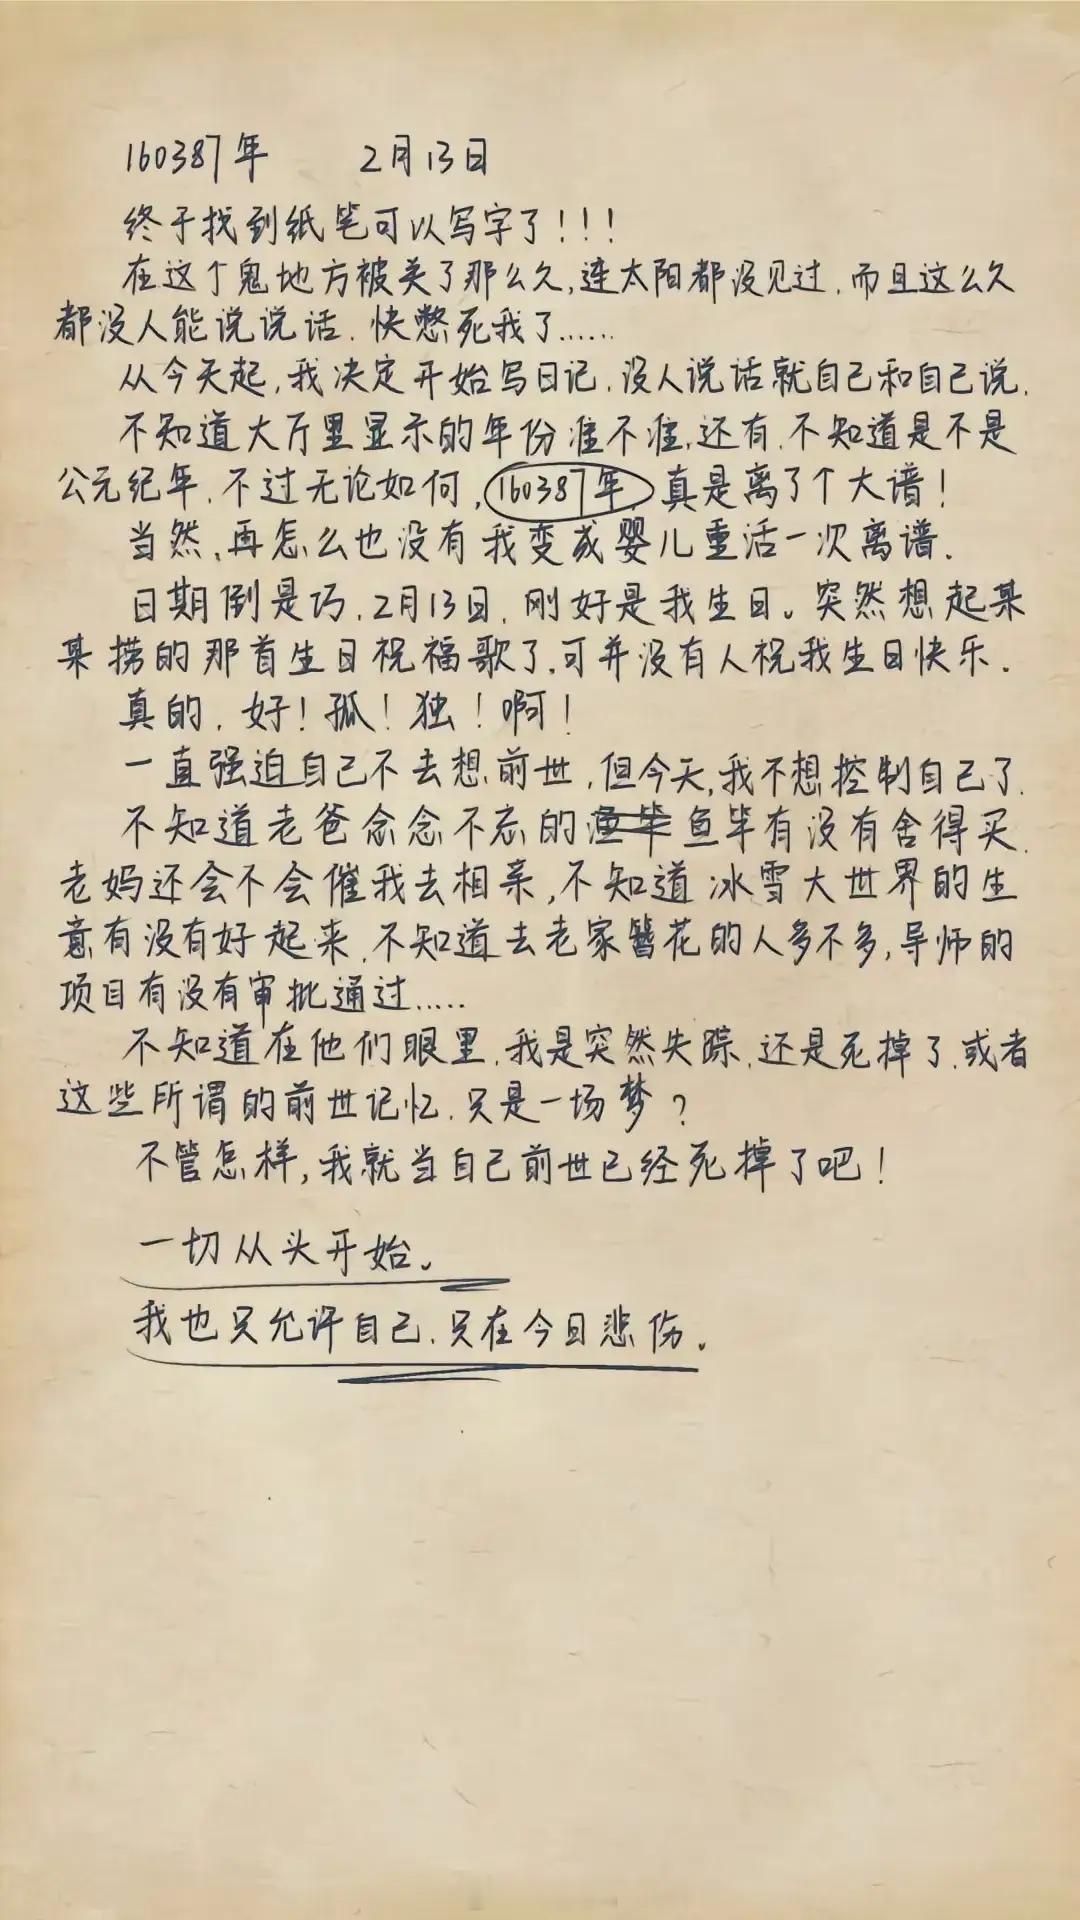 160387年 2月13日
终于找到纸笔可以写字了!!!
在这个鬼地方被关了那么久,连太阳都没见过.而且这么久
都没人能说说话.快憋死我了......
从今天起,我决定开始写日记.没人说话就自己和自己说.
不知道大厅里显示的年份准不准,还有.不知道是不是
公元纪年.不过无论如何,160387年,真是离了个大谱!
当然,再怎么也没有我变成婴儿重活一次离谱.
日期倒是巧.2月13日.刚好是我生日。突然想起某
某捞的那首生日祝福歌了,可并没有人祝我生日快乐.
真的.好!孤!独!啊!
一直强迫自己不去想前世,但今天,我不想控制自己了.
不知道老爸念念不忘的渔竿鱼竿有没有舍得买.
老妈还会不会催我去相亲,不知道冰雪大世界的生
意有没有好起来.不知道去老家簪花的人多不多,导师的
项目有没有审批通过.....
不知道在他们眼里.我是突然失踪.还是死掉了.或者
这些所谓的前世记忆.只是一场梦?
不管怎样,我就当自己前世已经死掉了吧!
一切从头开始。
我也只允许自己.只在今日悲伤。